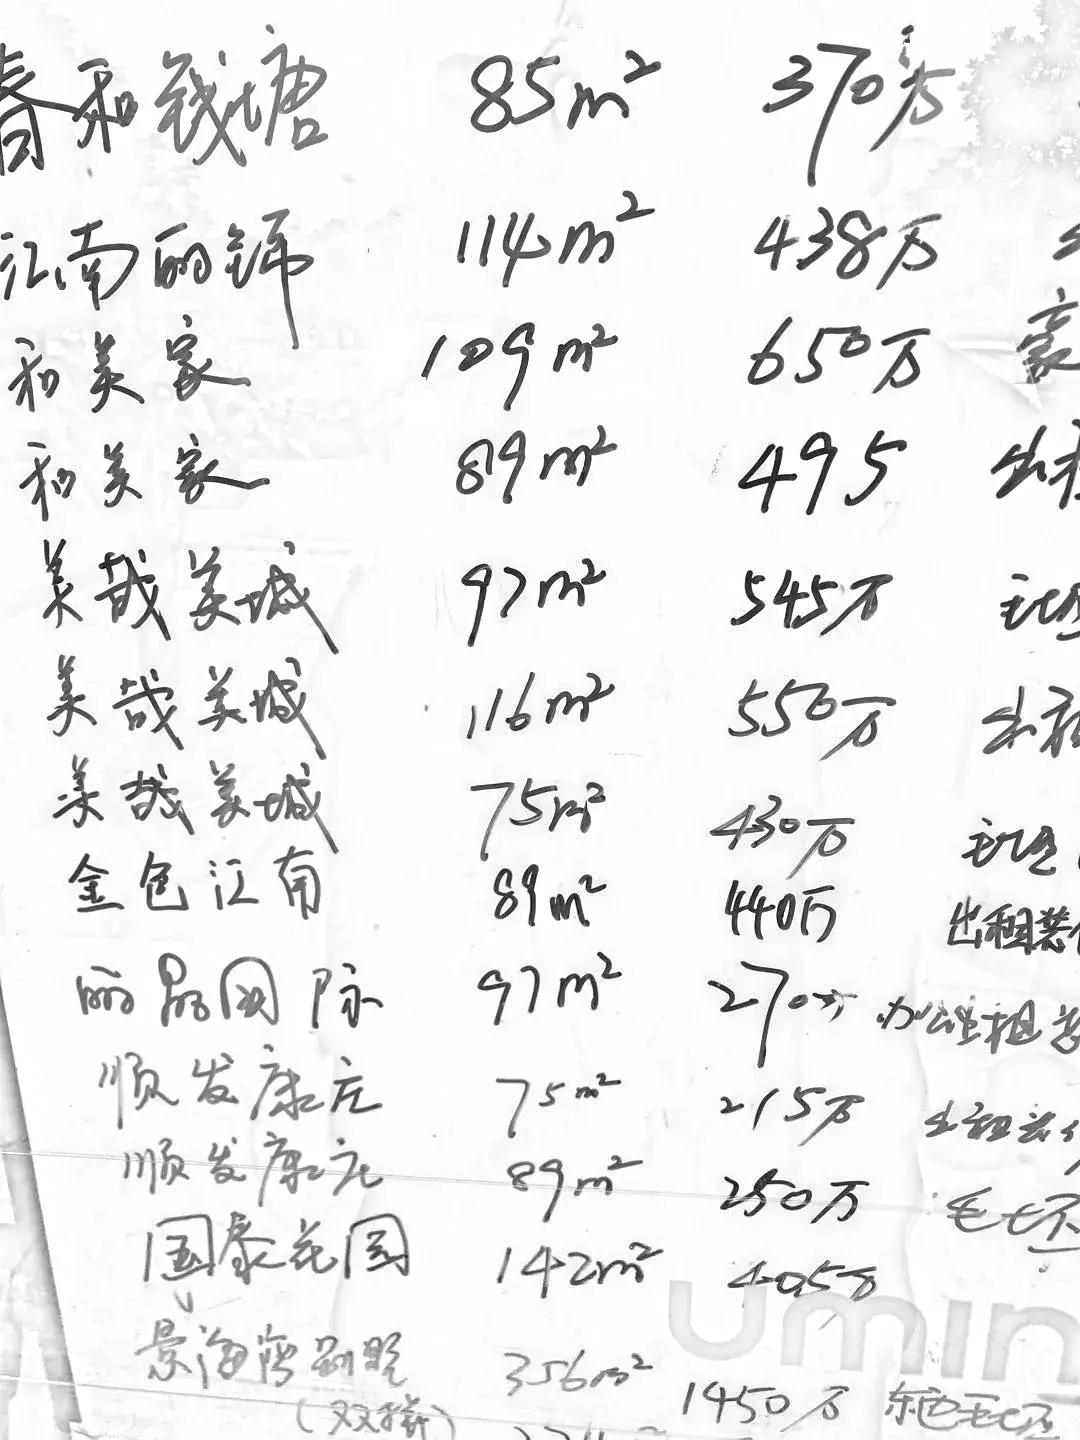 春和钱塘 85m² 370万
江南丽锦 114m² 438万
和美家 109m² 650万 豪
和美家 89m² 495 出租
美哉美城 97m² 545万 毛坯
美哉美城 116m² 550万 出租
美哉美城 75m² 430万 毛坯
金色江南 89m² 440万 出租装
丽晶国际 97m² 270万 办公租
顺发康庄 75m² 215万 出租装
顺发康庄 89m² 250万 毛坯
国泰花园 142m² 405万
umin
景海湾别墅 356m² 1450万 毛坯
(双